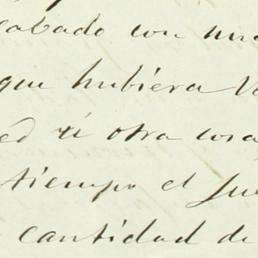 cabado con un
que hubiera
ed ú otra cosa
tiempo el Jue
cantidad de